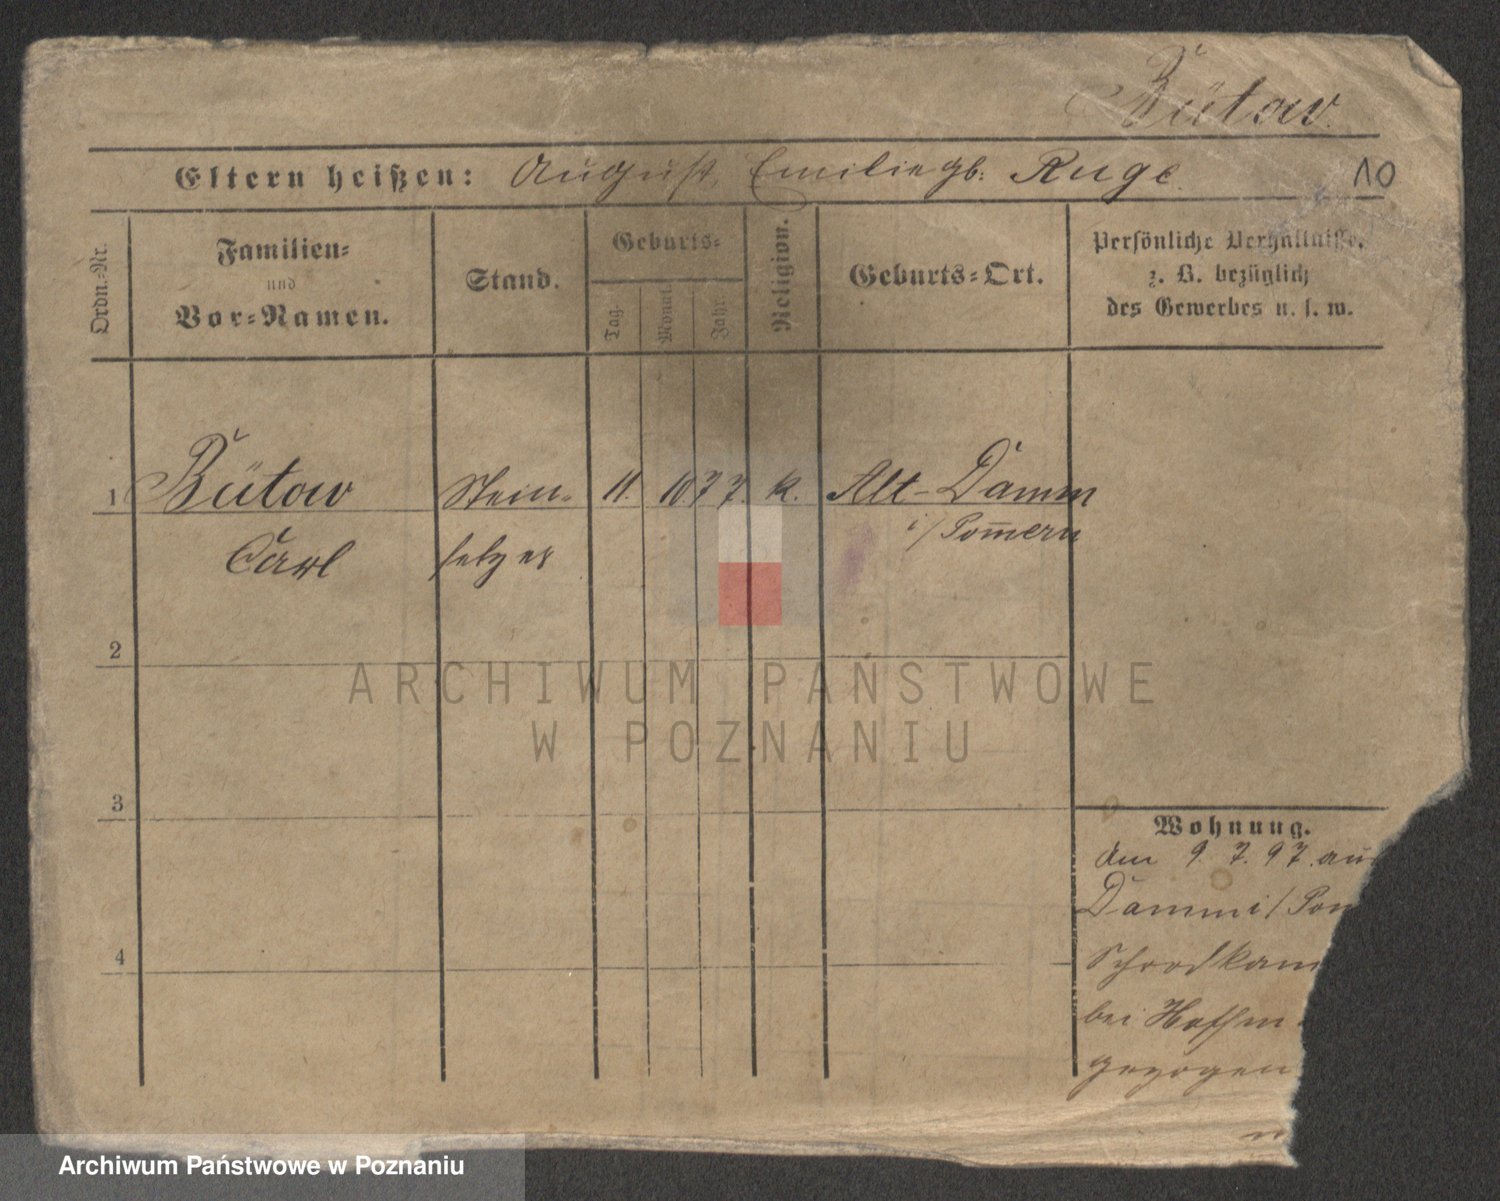 Bütow.
Eltern heißen: August, Emilie gb: Ruge.
10
Ordn.-Nr.
Familien-
und
Vor-Namen.
Stand.
Geburts-
Tag.
Monat.
Jahr.
Religion.
Geburts-Ort.
Persönliche Verhältnisse,
z. B. bezüglich
des Gewerbes u. s. w.
1 Bütow Stein- 11. 10 77. k. Alt-Damm
i/ Pom̅ern
Carl setzer
2
3
4
Wohnung.
Am 9. 7. 97. aus
Damm i/ Pom
bei Hoffm
gezogen
ARCHIWUM PAŃSTWOWE
W POZNANIU
Archiwum Państwowe w Poznaniu